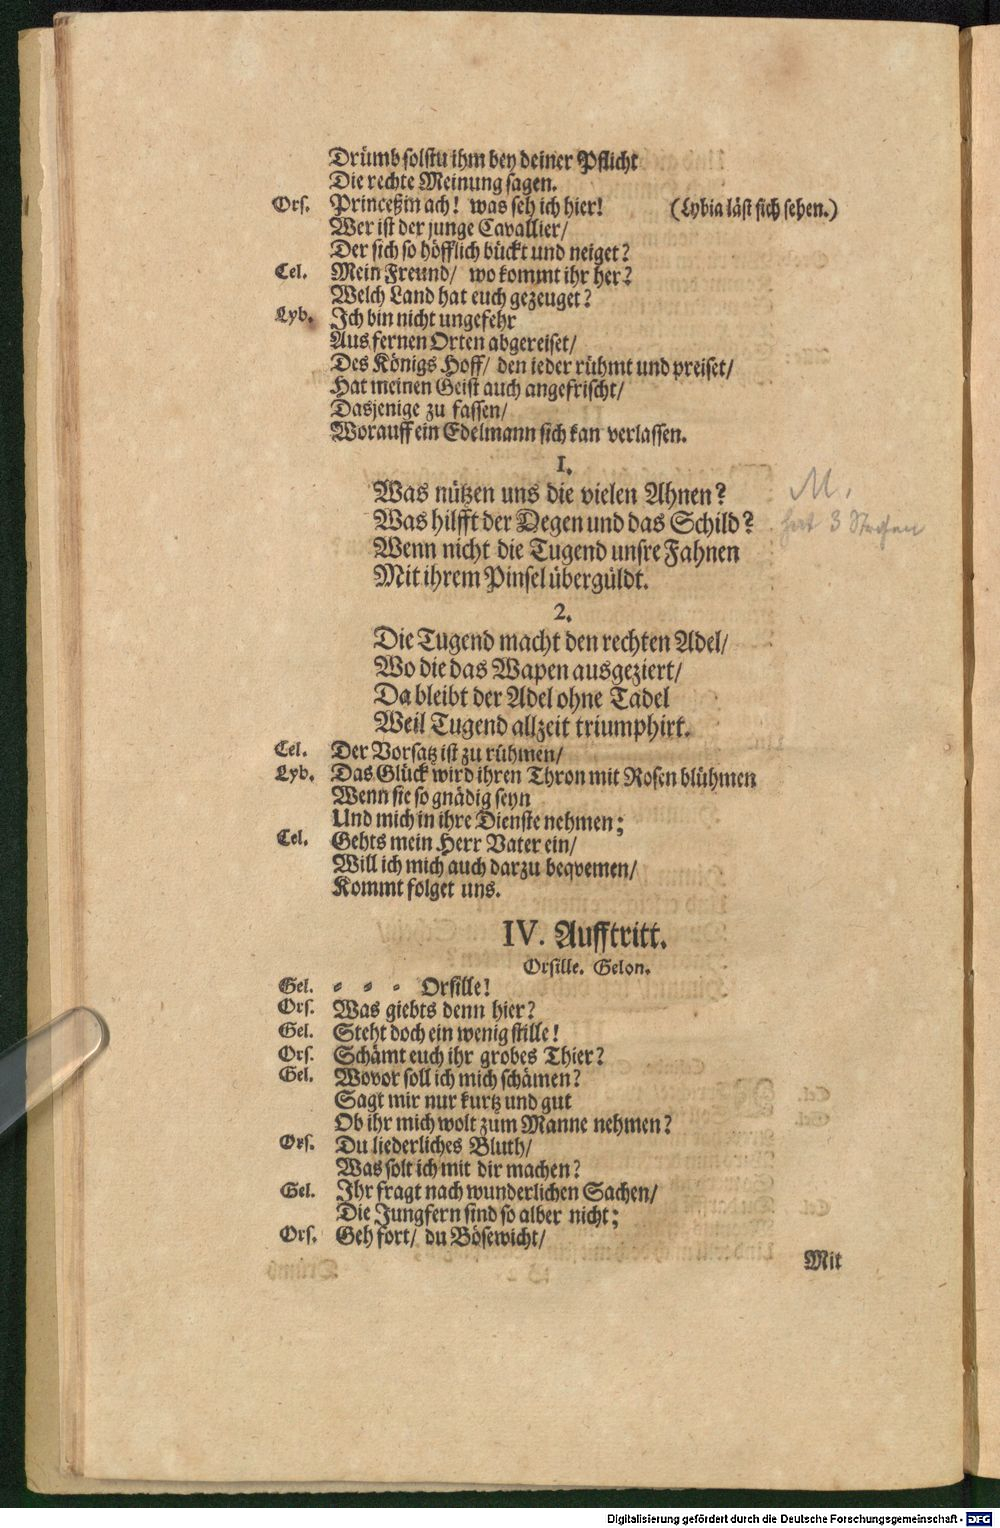 Drümb solstu ihm bey deiner Pflicht
Die rechte Meinung sagen.
Ors. Princeßin ach! was seh ich hier! (Lybia läst sich sehen.)
Wer ist der junge Cavallier/
Der sich so höfflich bückt und neiget?
Cel. Mein Freund/ wo kommt ihr her?
Welch Land hat euch gezeuget?
Lyb. Ich bin nicht ungefehr
Aus fernen Orten abgereiset/
Des Königs Hoff/ den ieder rühmt und preiset/
Hat meinen Geist auch angefrischt/
Dasjenige zu fassen/
Worauff ein Edelmann sich kan verlassen.
1.
Was nützen uns die vielen Ahnen? M.
Was hilfft der Degen und das Schild? hat 3 Strofen
Wenn nicht die Tugend unsre Fahnen
Mit ihrem Pinsel übergüldt.
2.
Die Tugend macht den rechten Adel/
Wo die das Wapen ausgeziert/
Da bleibt der Adel ohne Tadel
Weil Tugend allzeit triumphirt.
Cel. Der Vorsatz ist zu rühmen/
Lyb. Das Glück wird ihren Thron mit Rosen blühmen
Wenn sie so gnädig seyn
Und mich in ihre Dienste nehmen;
Cel. Gehts mein Herr Vater ein/
Will ich mich auch darzu beqvemen/
Kommt folget uns.
IV. Aufftritt.
Orsille. Gelon.
Gel. - - - Orsille!
Ors. Was giebts denn hier?
Gel. Steht doch ein wenig stille!
Ors. Schämt euch ihr grobes Thier?
Gel. Wovor soll ich mich schämen?
Sagt mir nur kurtz und gut
Ob ihr mich wolt zum Manne nehmen?
Ors. Du liederliches Bluth/
Was solt ich mit dir machen?
Gel. Ihr fragt nach wunderlichen Sachen/
Die Jungfern sind so alber nicht;
Ors. Geh fort/ du Bösewicht/
Mit
Digitalisierung gefördert durch die Deutsche Forschungsgemeinschaft - DFG